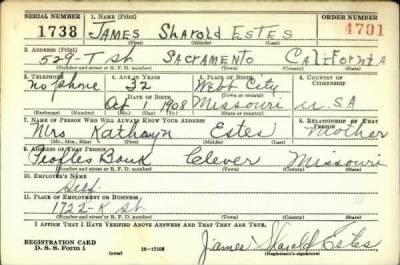 SERIAL NUMBER 1. NAME (Print) ORDER NUMBER
1738 JAMES Sharold ESTES 4701
(First) (Middle) (Last)
2. ADDRESS (Print)
529-T St. SACRAMENTO CALIFORNIA
(Number and street or R. F. D. number) (Town) (County) (State)
3. TELEPHONE 4. AGE IN YEARS 5. PLACE OF BIRTH 6. COUNTRY OF CITIZENSHIP
No phone 32 Webb City
DATE OF BIRTH
Oct 1908 Missouri U.S.A
7. NAME OF PERSON WHO WILL ALWAYS KNOW YOUR ADDRESS 8. RELATIONSHIP OF THAT PERSON
Mrs Kathryn Estes Mother
(Mr., Mrs., Miss) (First) (Middle) (Last)
9. ADDRESS OF THAT PERSON
Peoples Bank Clever Missouri
(Number and street or R. F. D. number) (Town) (County) (State)
10. EMPLOYER'S NAME
Self.
11. PLACE OF EMPLOYMENT OR BUSINESS
1722-K St.
(Number and street or R. F. D. number) (Town) (County) (State)
I AFFIRM THAT I HAVE VERIFIED ABOVE ANSWERS AND THAT THEY ARE TRUE.
REGISTRATION CARD James Sharold Estes
D. S. S. Form 1 (over) 16-17105 (Registrant's signature)